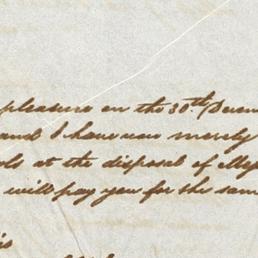 pleasure on the 30th Decem
and I have now merely
ols at the disposal of Mess
will pay you for the same
is